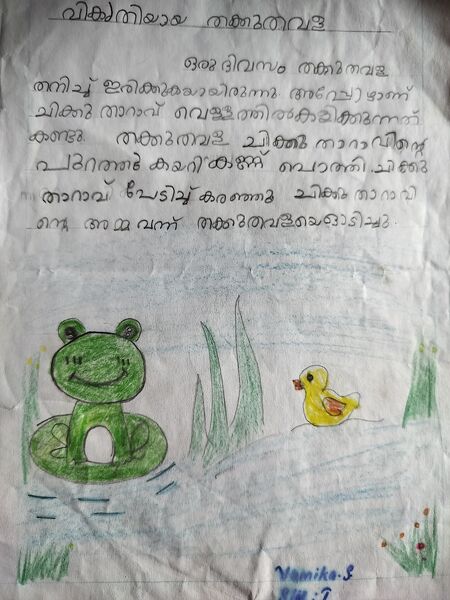 വികൃതിയായ തക്കുതവള
ഒരു ദിവസം തക്കുതവള
തനിച്ച് ഇരിക്കുകയായിരുന്നു. അപ്പോഴാണ്
ചിക്കു താറാവ് വെള്ളത്തിൽകളിക്കുന്നത്
കണ്ടു. തക്കുതവള ചിക്കു താറാവിന്റെ
പുറത്ത് കയറി കണ്ണ് പൊത്തി. ചിക്കു
താറാവ് പേടിച്ച് കരഞ്ഞു ചിക്കു താറാവി
ന്റെ അമ്മ വന്ന് തക്കുതവളയെഓടിച്ചു.
Vamika.S